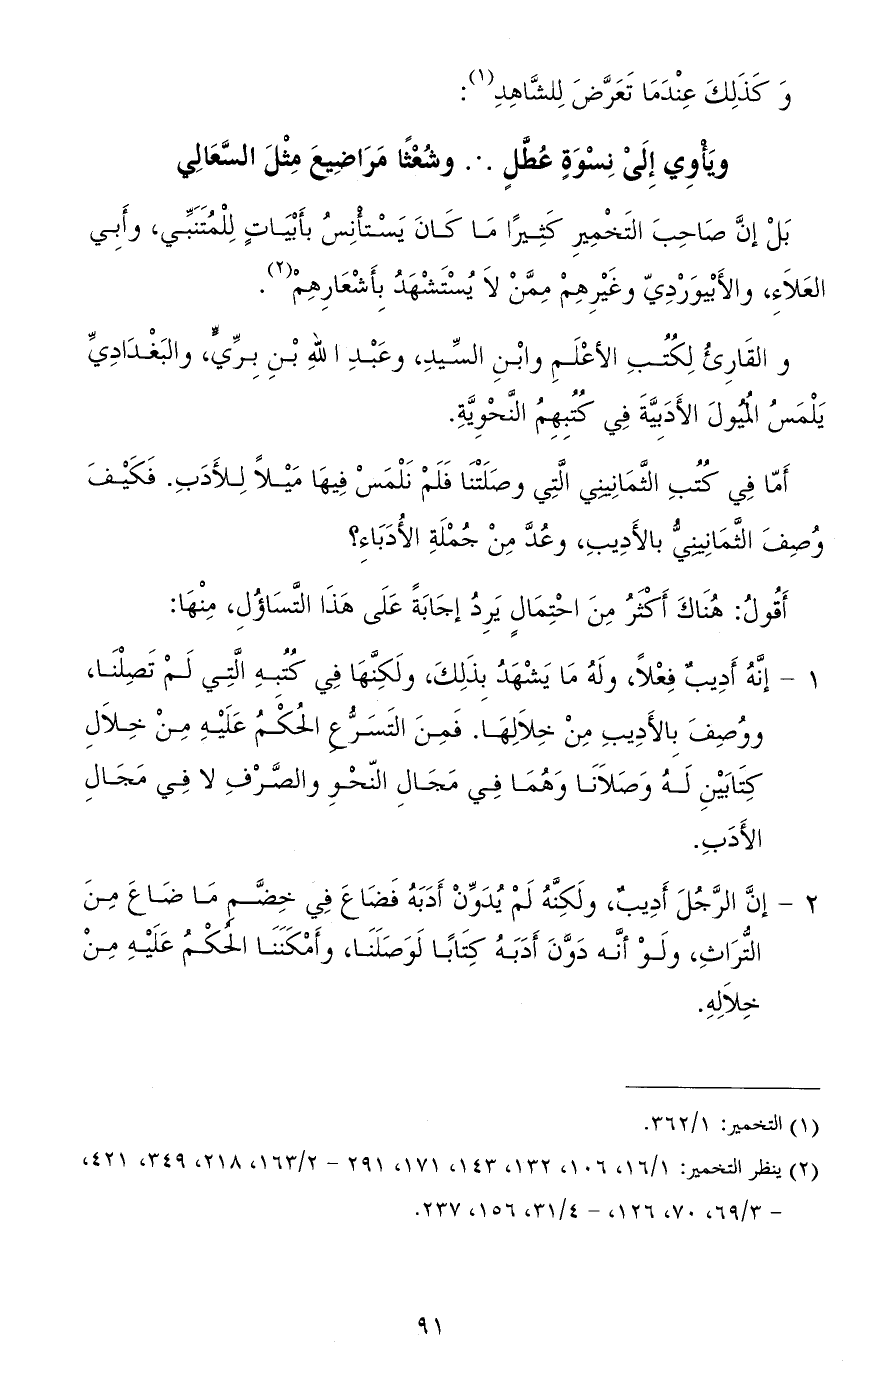 وَ كَذَلِكَ عِنْدَمَا تَعَرَّضَ لِلشَّاهِدِ(١):
ويَأْوِي إِلَىْ نِسْوَةٍ عُطَّلٍ ∴ وشُعْثًا مَرَاضِيعَ مِثْلَ السَّعَالِي
بَلْ إِنَّ صَاحِبَ التَخْمِيرِ كَثِيرًا مَا كَانَ يَسْتأْنِسُ بأَبْيَاتٍ لِلْمُتَنَبِّي، وأَبي
العَلاَءِ، والأَبْيوَرْدِيّ وغَيْرِهِمْ مِمَّنْ لاَ يُسْتَشْهَدُ بأَشْعَارِهِمْ(٢).
و القَارِئُ لِكُتُبِ الأَعْلَمِ وابْنِ السِّيدِ، وعَبْدِ اللهِ بْنِ بِرِّيٍّ، والبَغْدَادِيِّ
يَلْمَسُ المُيُولَ الأَدَبِيَّةَ فِي كُتُبِهِمُ النَّحْوِيَّةِ.
أَمَّا فِي كُتُبِ الثَّمَانِيني الَّتِي وصَلَتْنَا فَلَمْ نَلْمَسْ فِيهَا مَيْلاً لِلأَدَبِ. فَكَيْفَ
وُصِفَ الثَّمَانِينِيُّ بالأَدِيبِ، وعُدَّ مِنْ جُمْلَةِ الأُدَبَاءِ؟
أَقُولُ: هُنَاكَ أَكْثَرُ مِنَ احْتِمَالٍ يَرِدُ إجَابَةً عَلَى هَذَا التَّسَاؤُلِ، مِنْهَا:
١ - إِنَّهُ أَدِيبٌ فِعْلاً، ولَهُ مَا يَشْهَدُ بِذَلِكَ، ولَكِنَّهَا فِي كُتُبِهِ الَّتِي لَمْ تَصِلْنَا،
ووُصِفَ بِالأَدِيبِ مِنْ خِلاَلِهَا. فَمِنَ التَسَرُّعِ الحُكْمُ عَلَيْهِ مِنْ خِلاَلِ
كِتَابَيْنِ لَهُ وَصَلاَنَا وَهُمَا فِي مَجَالِ النَّحْوِ والصَّرْفِ لا فِي مَجَالِ
الأَدَبِ.
٢ - إِنَّ الرَّجُلَ أَدِيبٌ، ولَكِنَّهُ لَمْ يُدَوِّنْ أَدَبَهُ فَضَاعَ فِي خِضَّمِ مَا ضَاعَ مِنَ
التُّرَاثِ، ولَوْ أنَّه دَوَّنَ أَدَبَهُ كِتَابًا لَوَصَلَنَا، وأَمْكَنَنَا الحُكْمُ عَلَيْهِ مِنْ
خِلاَلِهِ.
(١) التخمير: ٣٦٢/١.
(٢) ينظر التخمير: ١٦/١، ١٠٦، ١٣٢، ١٤٣، ١٧١، ٢٩١ - ١٦٣/٢، ٢١٨، ٣٤٩، ٤٢١،
- ٦٩/٣، ٧٠، ١٢٦، - ٣١/٤، ١٥٦، ٢٣٧.
٩١